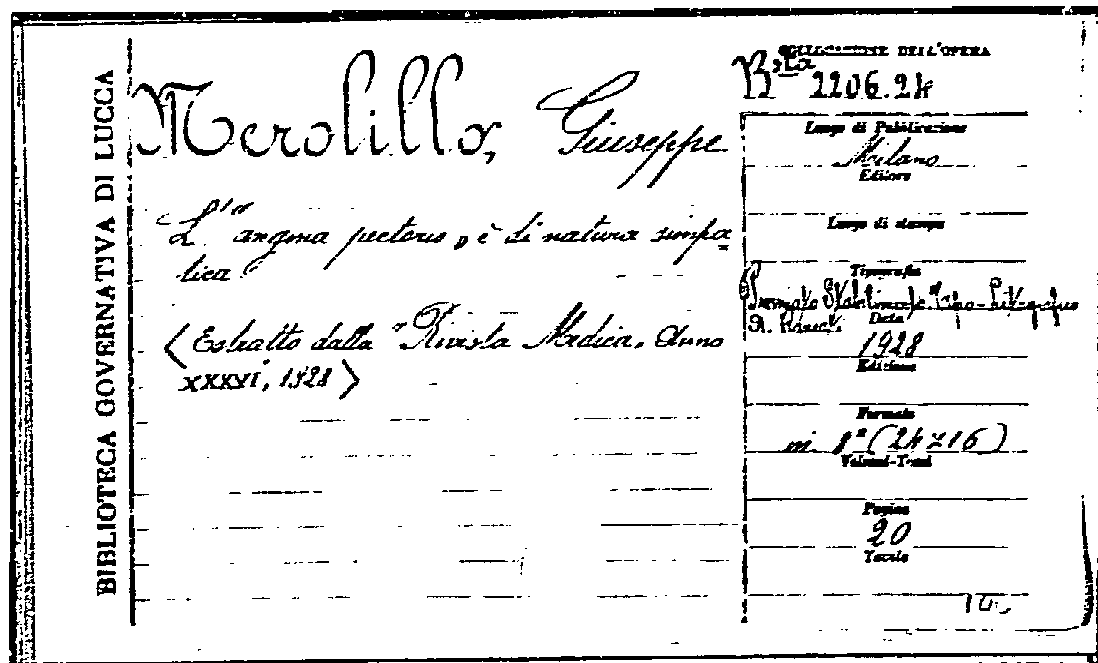 BIBLIOTECA GOVERNATIVA DI LUCCA
Merolillo, Giuseppe
L'"angina pectoris" è di natura simpa=
tica?
(Estratto dalla "Rivista Medica, Anno
XXXVI, 1928)
COLLOCAZIONE DELL'OPERA
B.ta 2206.24
Luogo di Pubblicazione
Milano
Editore
Luogo di stampa
Tipografia
Premiato Stabilimento Tipo-Litografico
Data
1928
Edizione
Formato
in 8° (24x16)
Volumi-Tomi
Pagine
20
Tavole